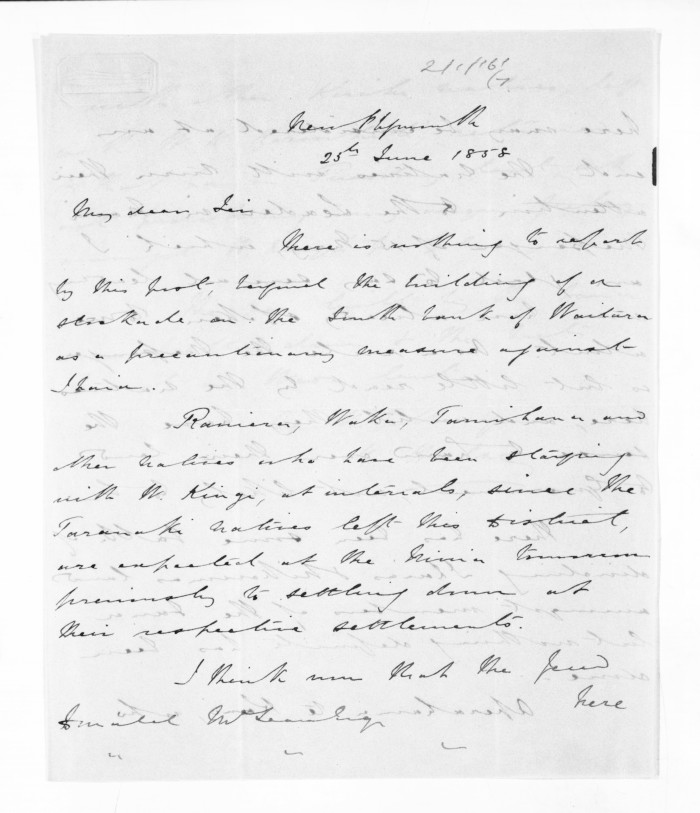 New Plymouth
25th June 1858
My dear Sir
There is nothing to report
by this post, beyond the building of a
stockade on the South bank of Waitara
as a precautionary measure against
Ihaia.
Raniera, Waka, Tamihana and
other natives who have been staying
with W. Kingi, at intervals, since the
Taranaki natives left this District,
are expected at the Ninia tomorrow
previously to settling down at
their respective settlements.
I think now that the feud
here
Donald McLean Esqr
" " "